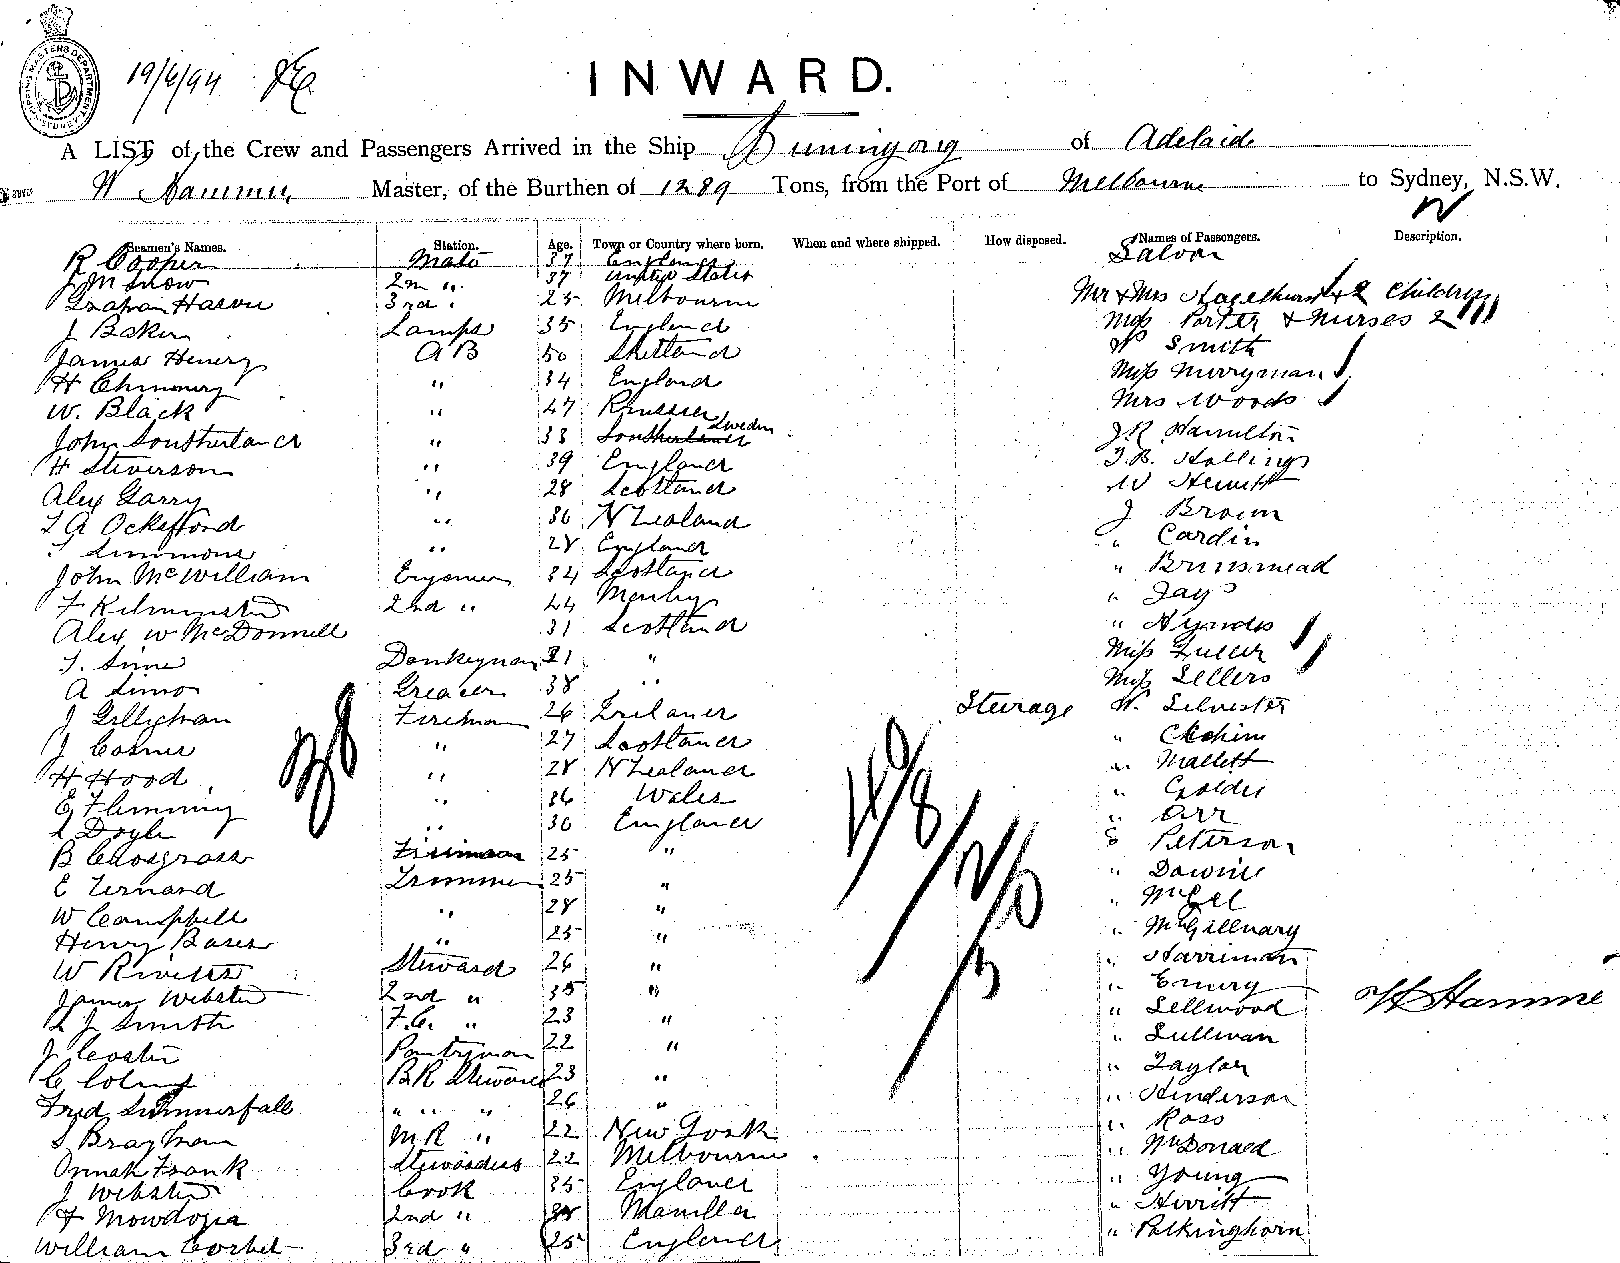 SHIPPING MASTERS DEPARTMENT SYDNEY
19/6/94
INWARD.
A LIST of the Crew and Passengers Arrived in the Ship Buninyong of Adelaide
Master, of the Burthen of 1289 Tons, from the Port of Melbourne to Sydney, N.S.W.
Seamen's Names. Station. Age. Town or Country where born. When and where shipped. How disposed. Names of Passengers. Description.
R Cooper Mate 37 England Saloon
J M Snow 2nd " 37 United States
Graham 3rd " 25 Melbourne Mr & Mrs & 2 Children
J Baker Lamps 35 England Miss Porter & Nurses 2
James Henery A B 50 Shetland W Smith
H " 34 England Miss Merryman
W. Black " 47 Russia Mrs Woods
John Southerland " 38 Sweden J R Hamilton
H Steverson " 39 England T. B. Hollings
Alex Garry " 28 Scotland W Hewitt
" 36 N Zealand J Brown
T Simmons " 28 England " Cardin
John McWilliam 34 Scotland " Brinsmead
F Kilminster 2nd " 44 " Jay
Alex W McDonnell 31 Scotland " Hyndes
T. Sime Donkeyman 31 " Miss Fuller
A Simon Greaser 38 " Miss Sellers
J Fireman 26 Ireland Steerage W. Silvester
J Cosner " 27 Scotland "
H Hood " 28 N Zealand " Mallett
E Flemming " 36 Wales " Goldie
L Doyle " 30 England " Orr
B Cosgrass Fireman 25 " S Peterson
E Trimmer 25 " " Downie
W Campbell " 28 " "
Henry " 25 " " McGillvary
W Steward 26 " " Harriman
James Webster 2nd " 35 " " Emery
L J Smith F.C. " 23 " " Sellwood
J Coster Pantryman 22 " " Sullivan
C B R Steward 23 " " Taylor
Fred Summerfall " " " 26 " " Henderson
S M R " 22 New York " Ross
Annah Frank Stewardess 22 Melbourne " McDonald
J Webster Cook 35 England " Young
F 2nd " 38 Manilla " Herritt
William Corbet 3rd " 25 England " Polkinghorn